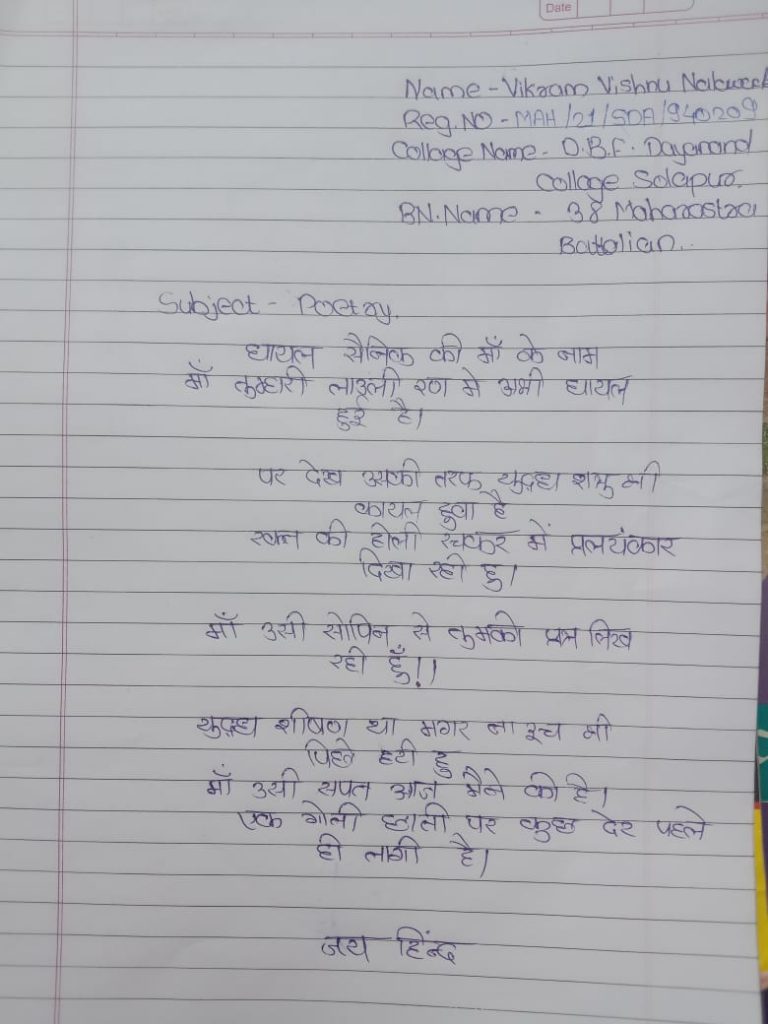 Date
Name - Vikram Vishnu
Reg.NO - MAH/21/SDA/940209
Collage Name - D.B.F. Dayanand
Collage Solapur.
BN.Name - 38 Maharastra
Battalian..
Subject - Poetry.
घायल सैनिक की माँ के नाम
माँ तुम्हारी लाड़ली रण मे अभी घायल
हुई है।
पर देख उसकी तरफ युद्ध शत्रु भी
कायल हुवा है
रक्त की होली रचकर में प्रलयंकार
दिखा रही हु।
माँ उसी से तुमको पत्र लिख
रही हूँ!!
युद्ध भीषण था मगर ना इंच भी
पिछे हटी हु
माँ उसी सपत आज मैने की है।
एक गोली छाती पर कुछ देर पहले
ही लागी है।
जय हिंन्द